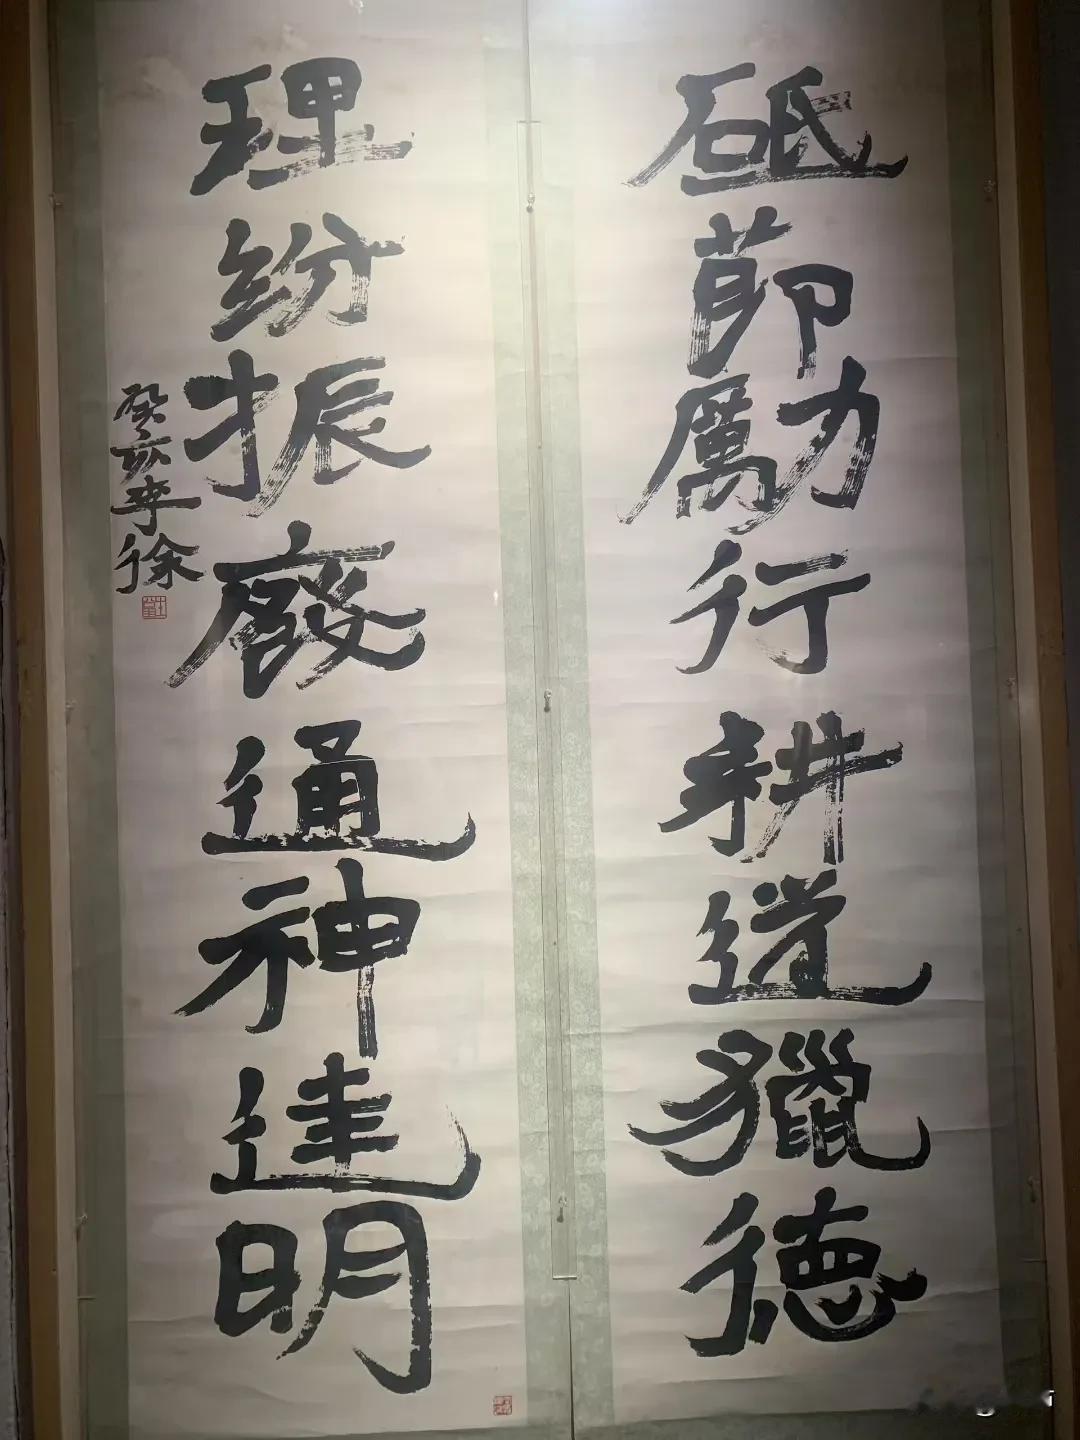 砥節勵行耕道獵德
理紛振廢通神達明
癸亥李徐